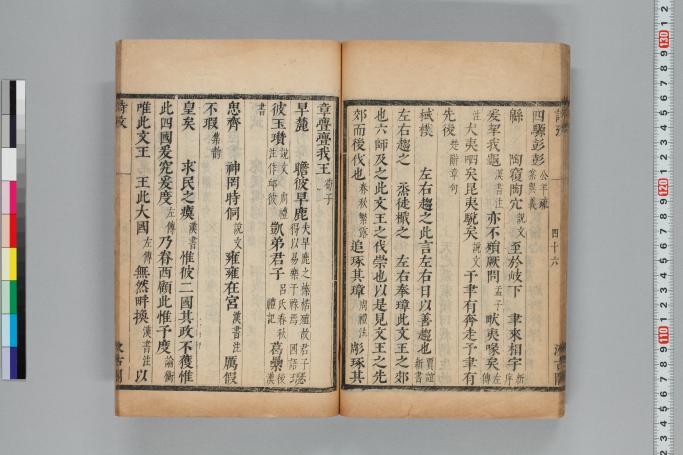 詩攷
四十六
汲古閣
四騵彭彭公羊疏
緜 陶復陶穴說文 至於岐下 聿來相宇新序
爰挈我龜漢書注 亦不殞厥問孟子 㕧夷喙矣左傳
注 犬夷呬矣昆夷駾矣說文 予聿有奔走予聿有
先後楚辭章句
棫樸 左右趨之此言左右日以善趨也賈誼新書
左右趨之 烝徒楫之 左右奉璋此文王之郊
也六師及之此文王之伐崇也以是見文王之先
郊而後伐也春秋繁露 追琢其璋周禮注 彫琢其
章亹亹我王荀子
早麓 瞻彼早鹿夫旱鹿之榛楛殖故君子
得以易樂干祿焉 國語
彼玉瓚說文 周禮注作卹彼 凱弟君子呂氏春秋 禮記 葛藟後漢
書
思齊 神罔時侗說文 雍雍在宮漢書注 厲假
不瑕集韻
皇矣 求民之瘼漢書 惟彼二國其政不獲惟
此四國爰究爰度左傳 乃眷西顧此惟予度論衡
唯此文王 王此大國左傳 無然畔換漢書注 以
詩攷
汲古閣